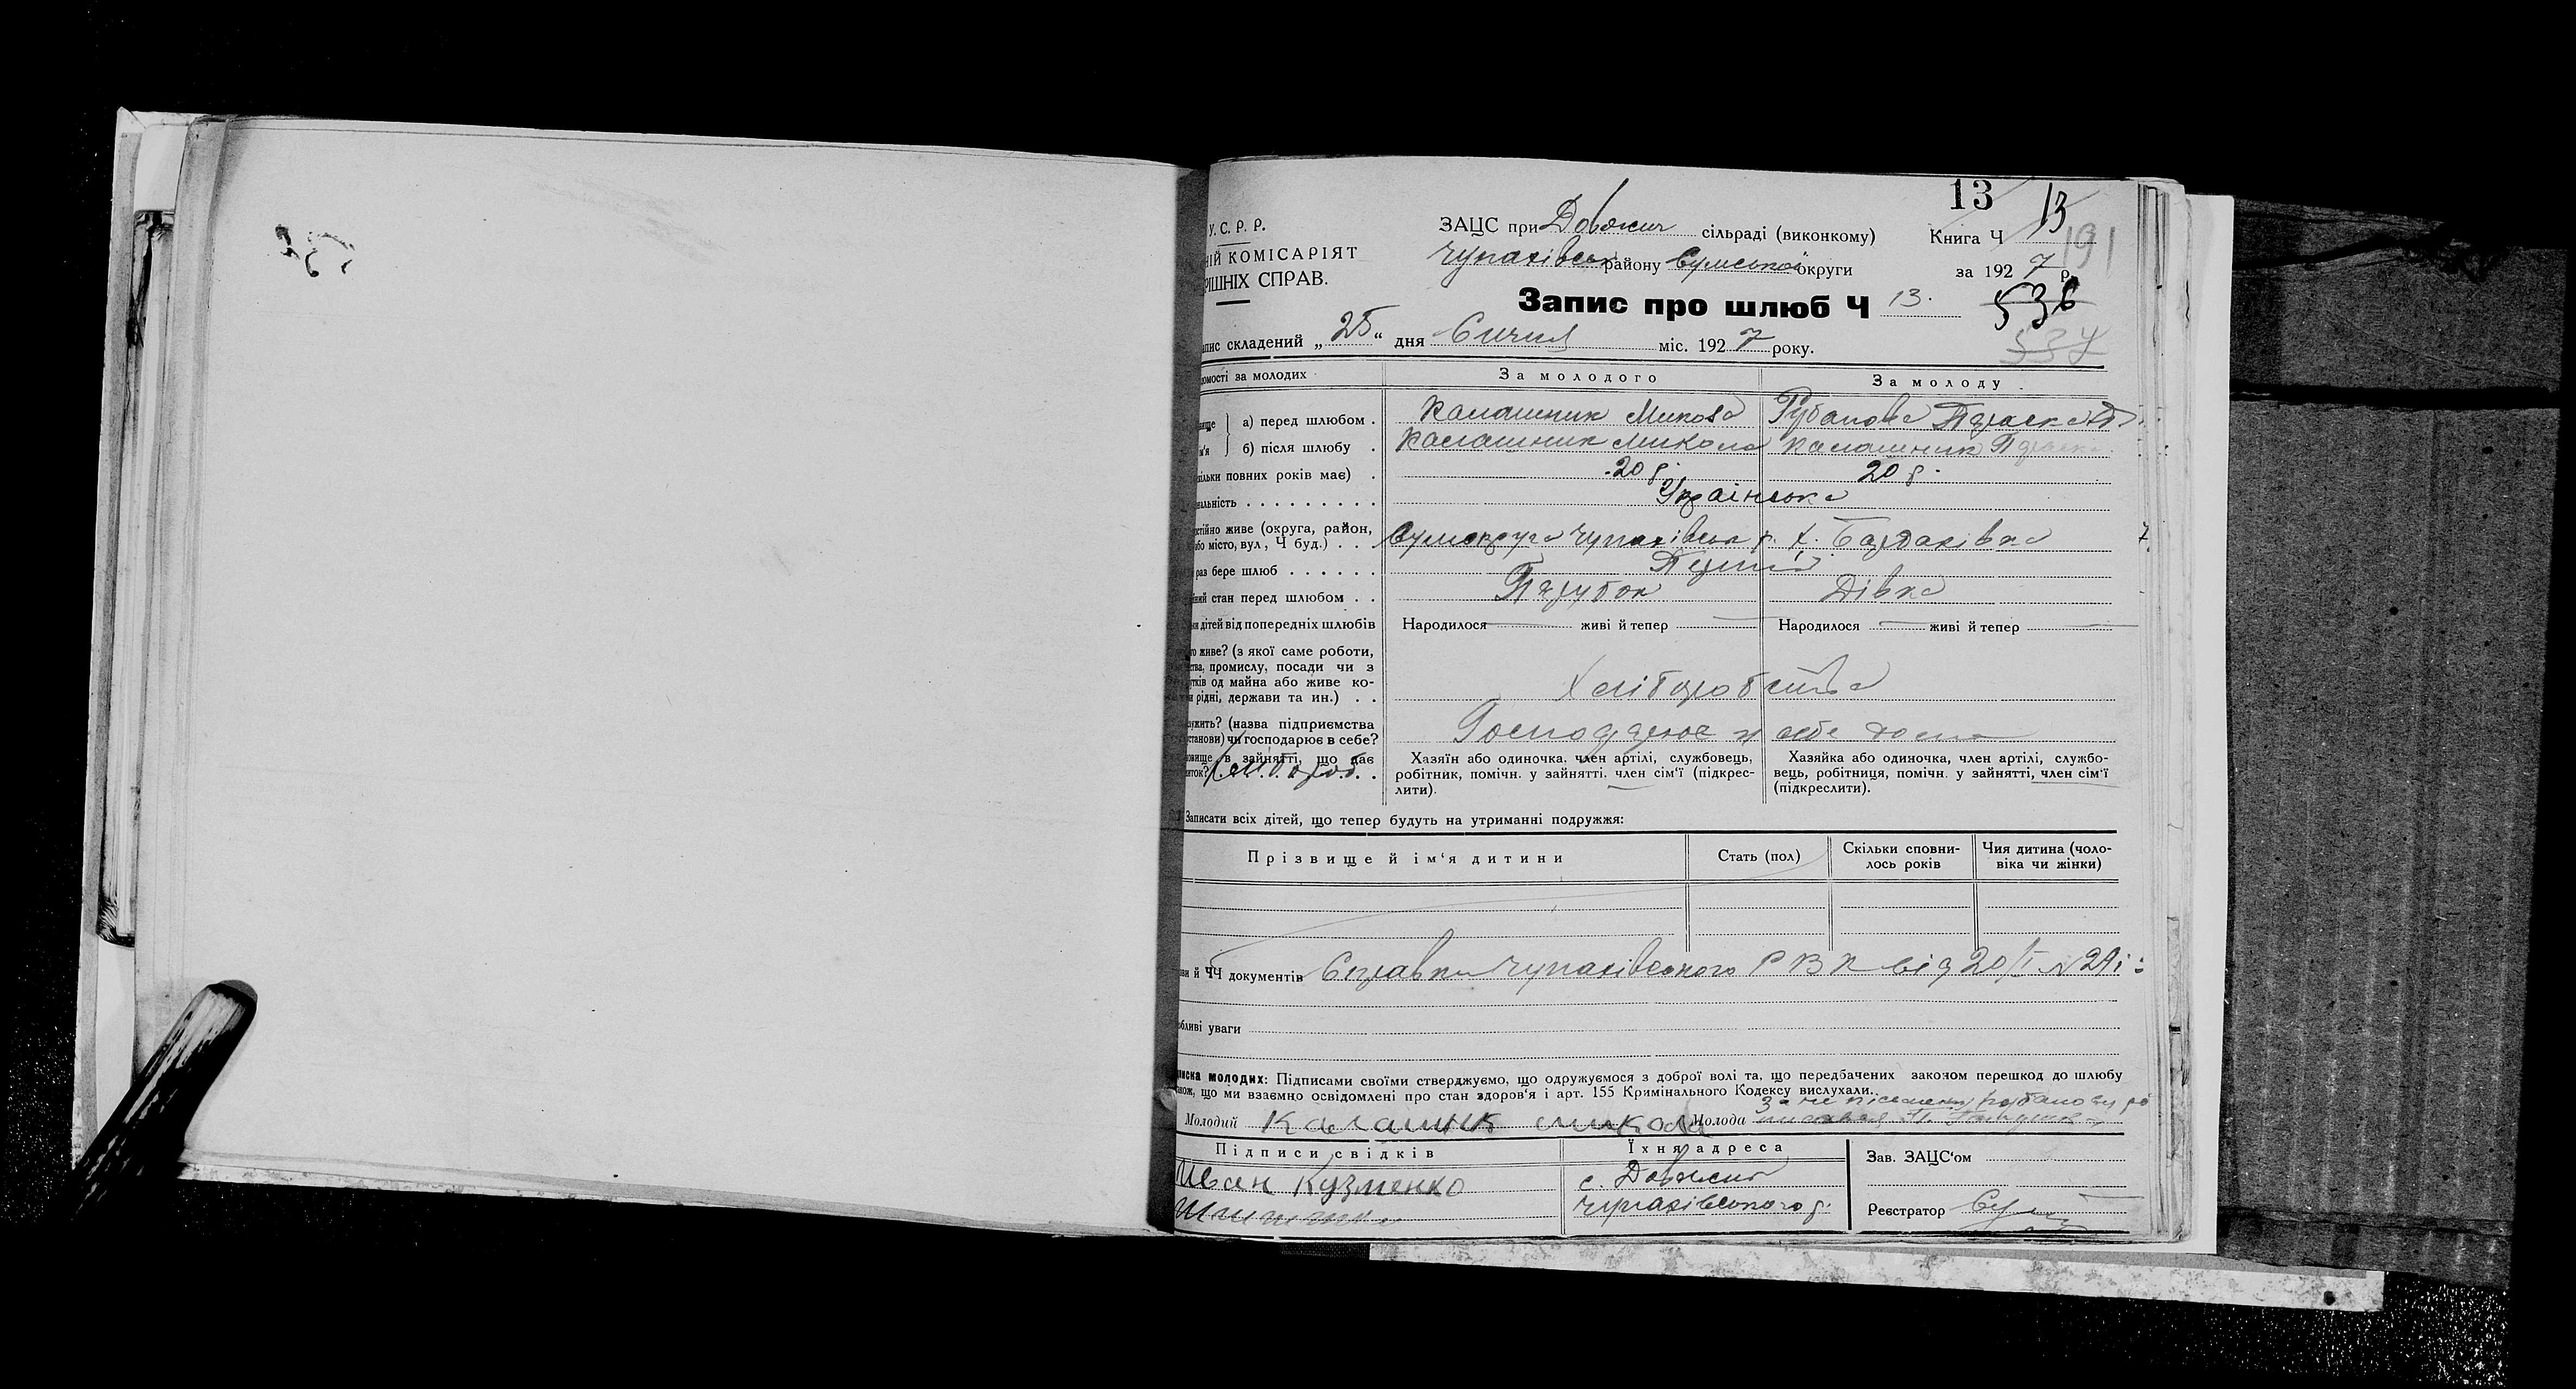 13 13
У. С. Р. Р. ЗАЦС при Довжик сільраді (виконкому) Книга Ч 191
НІЙ КОМІСАРІЯТ Чупахівськ району Сумської округи за 1927 р.
РІШНІХ СПРАВ.
Запис про шлюб Ч 13. 536
апис складений „ 25 “ дня Січня міс. 1927 року. 537
омості за молодих За молодого За молоду
вище а) перед шлюбом . Калашник Микола Рубанова Параска
м'я б) після шлюбу . Калашник Микола Калашник Параска
кільки повних років має) . 20 р. 20 р.
нальність . . . . . . . . . Українська
стійно живе (округа, район,
або місто, вул, Ч буд.) . . . Сумокруга Чупахівськ р. х.
раз бере шлюб . . . . . . Перший
ний стан перед шлюбом . . Парубок Дівка
ки дітей від попередніх шлюбів Народилося живі й тепер Народилося живі й тепер
го живе? (з якої саме роботи,
ства, промислу, посади чи з
утків од майна або живе ко-
и рідні, держави та ин.) . . Хліборобства
лужить? (назва підприємства
станови) чи господарює в себе? Господарює в себе дома
овище в зайнятті, що дає
иток? Хлібороб. . Хазяїн або одиночка, член артілі, службовець, робітник, помічн. у зайнятті, член сім'ї (підкрес-лити). Хазяйка або одиночка, член артілі, службо-вець, робітниця, помічн. у зайнятті, член сім'ї (підкреслити).
Записати всіх дітей, що тепер будуть на утриманні подружжя:
Прізвище й ім'я дитини Стать (пол) Скільки сповни-лось років Чия дитина (чоло-віка чи жінки)
ви й ЧЧ документів Справки Чупахівського РВК від 20/I №
обливі уваги
писка молодих: Підписами своїми стверджуємо, що одружуємося з доброї волі та, що передбачених законом перешкод до шлюбу
акож, що ми взаємно освідомлені про стан здоров'я і арт. 155 Кримінального Кодексу вислухали.
Молодий Калашник микола Молода За не письменну Рубанову
Підписи свідків Їхня адреса Зав. ЗАЦС'ом
Иван Кузменко с. Довжик
Чупахівського р. Реєстратор